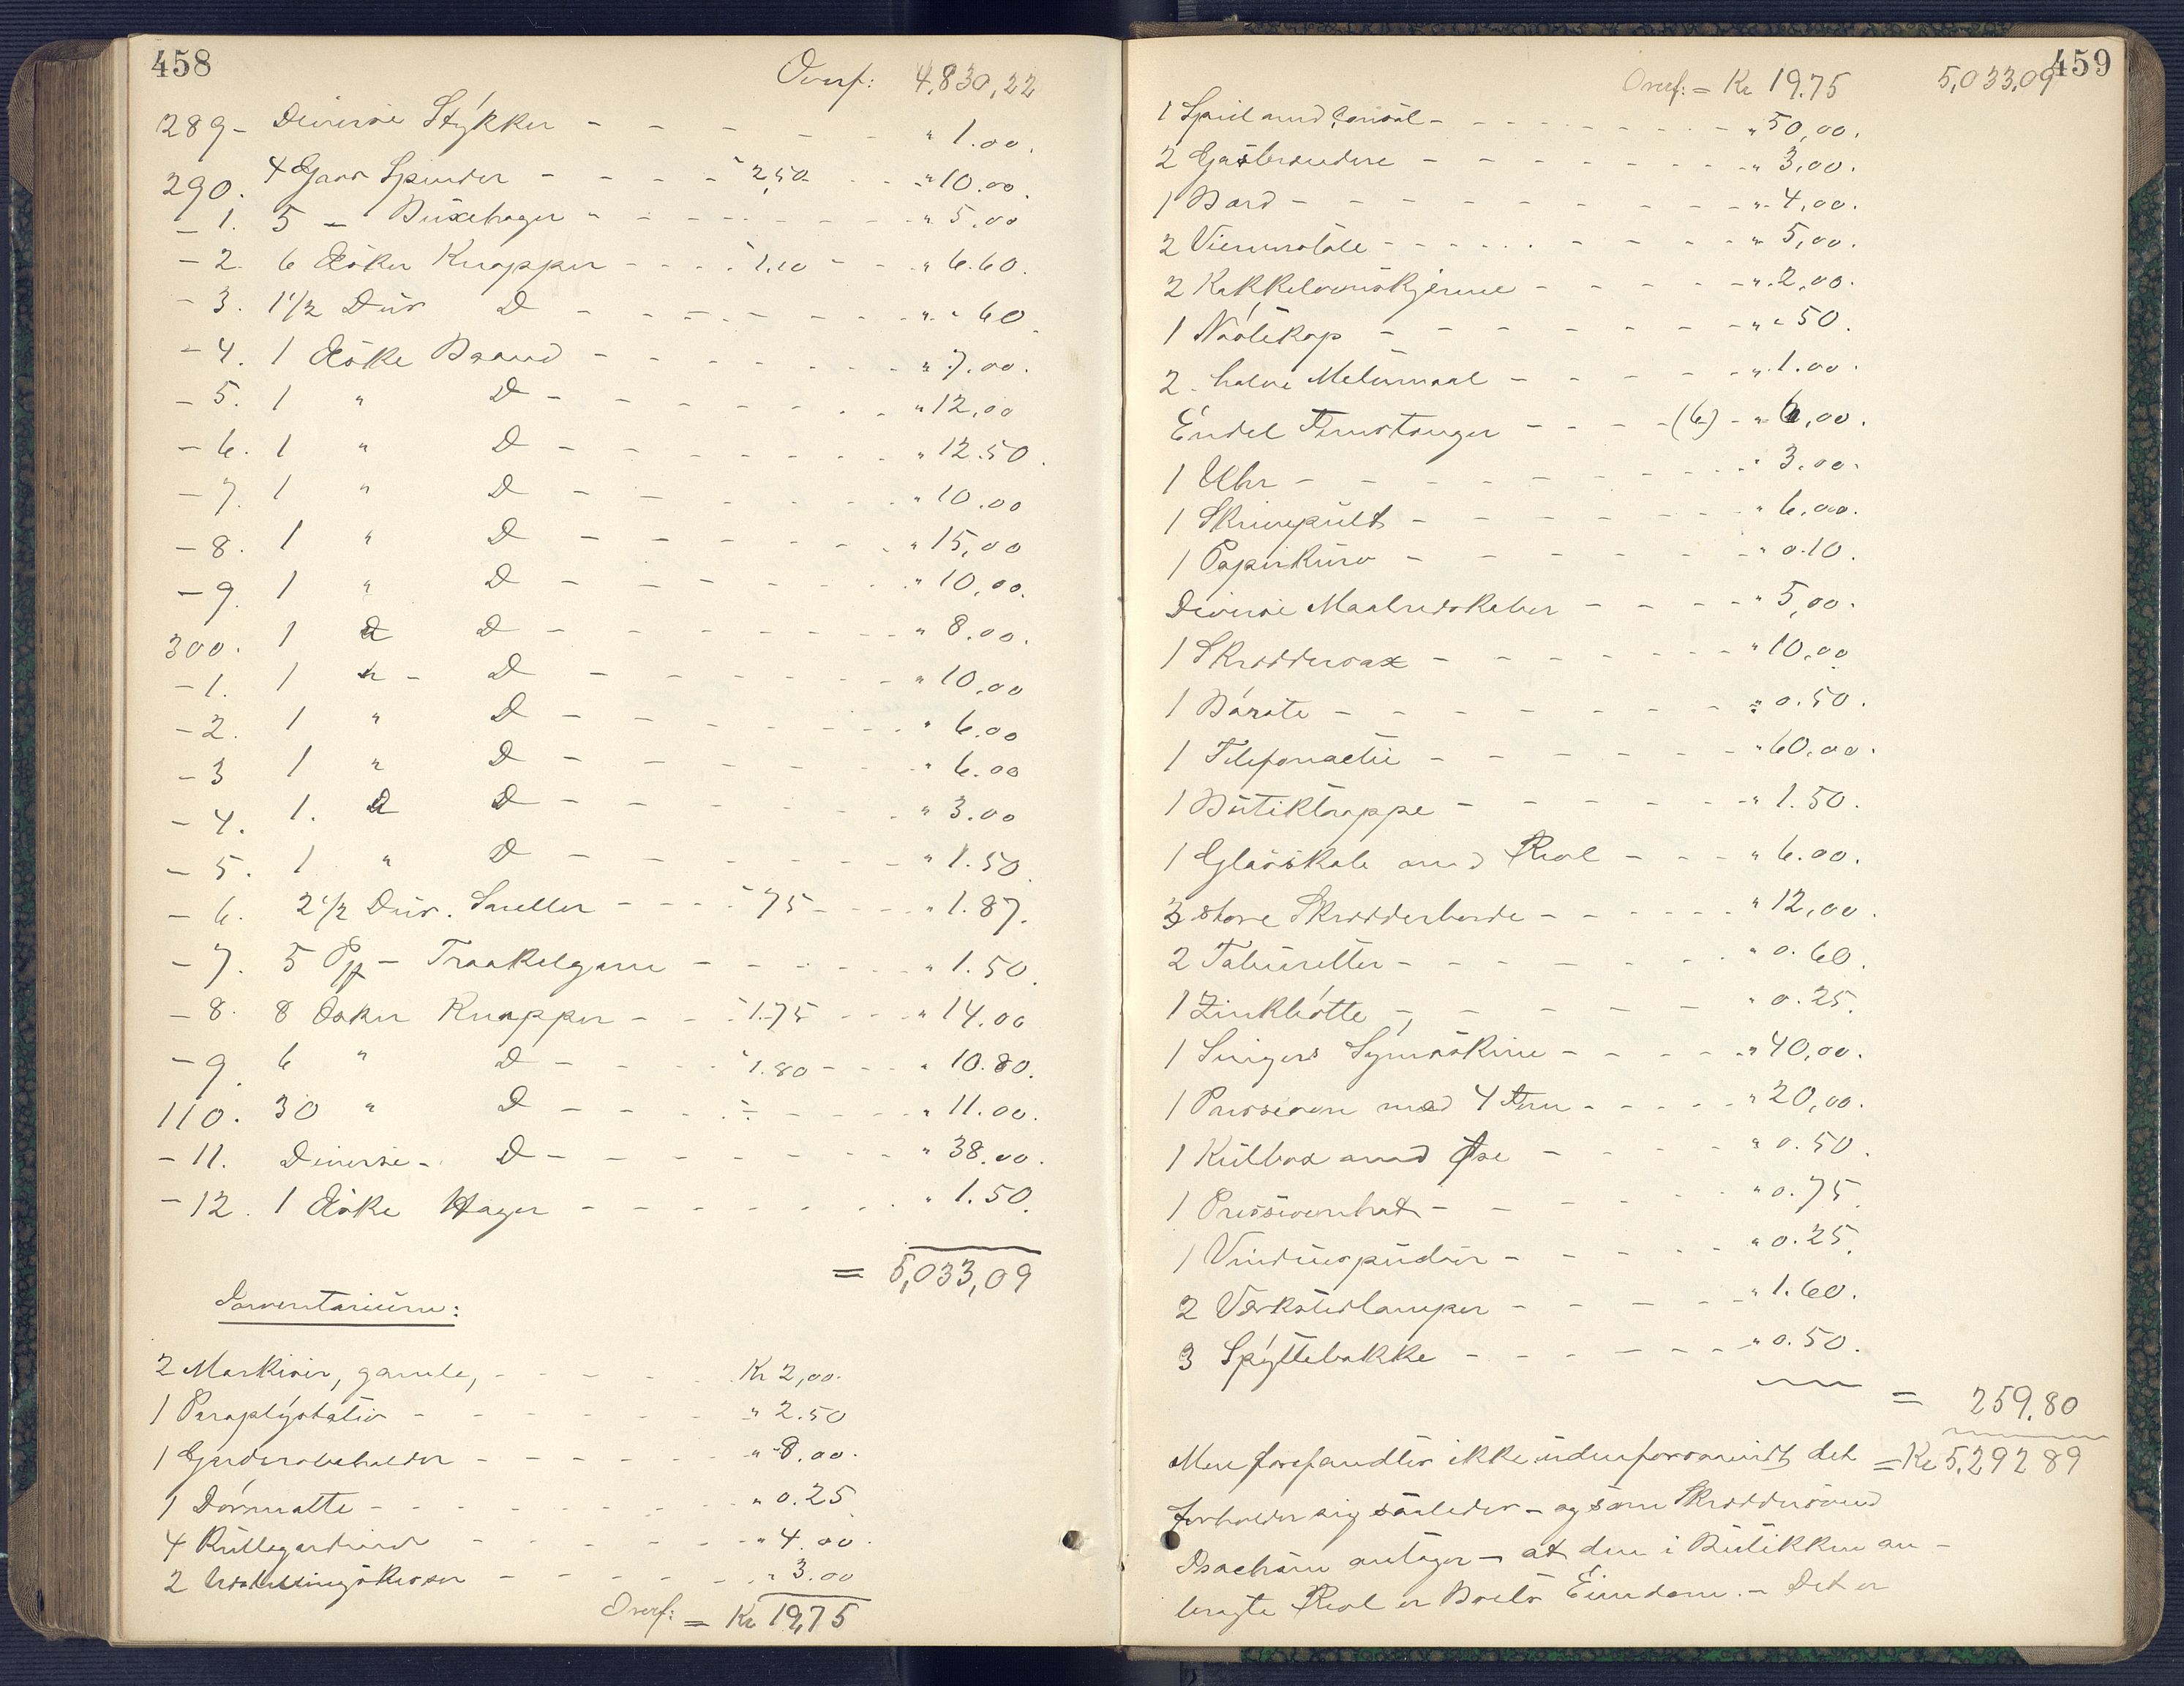 458
Overf: 4,830,22
289- Diverse Stykker - - - - - - " 1.00.
290. 4 Gros Spender - - - - " 2,50 - - " 10.00.
- 1. 5 - Buxehager - - - - - - - " 5,00
- 2. 6 Æsker Knapper - - - " 1.10 - - " 6.60.
- 3. 1 1/2 Dus D - - - - - - - " " 60.
- 4. 1 Æske Baand - - - - - - " 7.00.
- 5. 1 " D - - - - - - " 12,00
- 6. 1 " D - - - - - - " 12.50.
- 7. 1 " D - - - - - - " 10.00
- 8. 1 " D - - - - - - " 15,00
- 9. 1 " D - - - - - - " 10,00.
300. 1 " D - - - - - - " 8.00.
- 1. 1 " - D - - - - - - " 10,00
- 2. 1 " D - - - - - - " 6.00
- 3 1 " D - - - - - - " 6.00
- 4. 1. " D - - - - - - " 3.00
- 5. 1 " D - - - - - - " 1.50.
- 6. 2 1/2 Dus. Sneller - - - " 75 - - - " 1.87.
- 7. 5 - Traakelgarn - - - - - " 1.50.
- 8. 8 Æsker Knapper - - " 1.75 - - - " 14.00
- 9. 6 " D - - - - " 1.80 - - - " 10.80.
110. 30 " D - - - - - - - " 11.00.
- 11. Diverse - D - - - - - - - " 38.00.
- 12. 1 Æske Hager - - - - - - - " 1.50.
= 5,033,09
Inventarium:
2 Markiser, gamle, - - - - - Kr 2,00.
1 Paraplystativ - - - - - - " 2.50
1 Garderobeholder - - - - - " 8.00.
1 Dørmatte - - - - - - - " 0.25
4 Rullegardiner - - - - - - " 4.00.
2 Udstillingskasser - - - - - " 3.00
Overf: = Kr 19,75
459
Overf: = Kr 19.75 5,033,09
1 Speil med Consol - - - - - - - " 50,00.
2 Gasbrændere - - - - - - - " 3,00.
1 Bord - - - - - - - - - " 4,00.
2 Vienerstole - - - - - - - - " 5,00.
2 Kakkelovnskjerme - - - - - " 2,00.
1 - - - - - - - " " 50.
2 halve Metermaal - - - - - " 1.00.
Endel - - - - (6) - " 6,00.
1 Uhr - - - - - - - - " 3.00.
1 Skrivepult - - - - - - " 6,00.
1 Papirkurv - - - - - - " 0.10.
Diverse Maalredskaber - - - - " 5,00.
1 Skræddersax - - - - - - " 10,00
1 Børste - - - - - - - - " 0.50.
1 Telefonactie - - - - - - " 60.00.
1 Butiktrappe - - - - - - " 1.50.
1 Glasskab med Reol - - - " 6.00.
3 store Skrædderborde - - - - - " 12,00.
2 Tabouretter - - - - - - - " 0.60.
1 Zinkbøtte - - - - - - " 0.25.
1 Singers Symaskine - - - - " 40,00.
1 Presseovn med 4 Jern - - - - " 20,00.
1 Kulbox med Øse - - - - " 0.50.
1 - - - - - - " 0.75.
1 Vinduspudser - - - - - " 0.25.
2 Værkstedlamper - - - - - " 1.60.
3 Spyttebakke - - - - - - " 0.50.
= 259.80
Mere forefandtes ikke uden forsaavidt det = Kr 5,292 89
forholder sig saaledes - og som Skræddersvend
Isachsen antager - at den i Butikken an-
bragte Reol er Boets Eiendom. - Det er